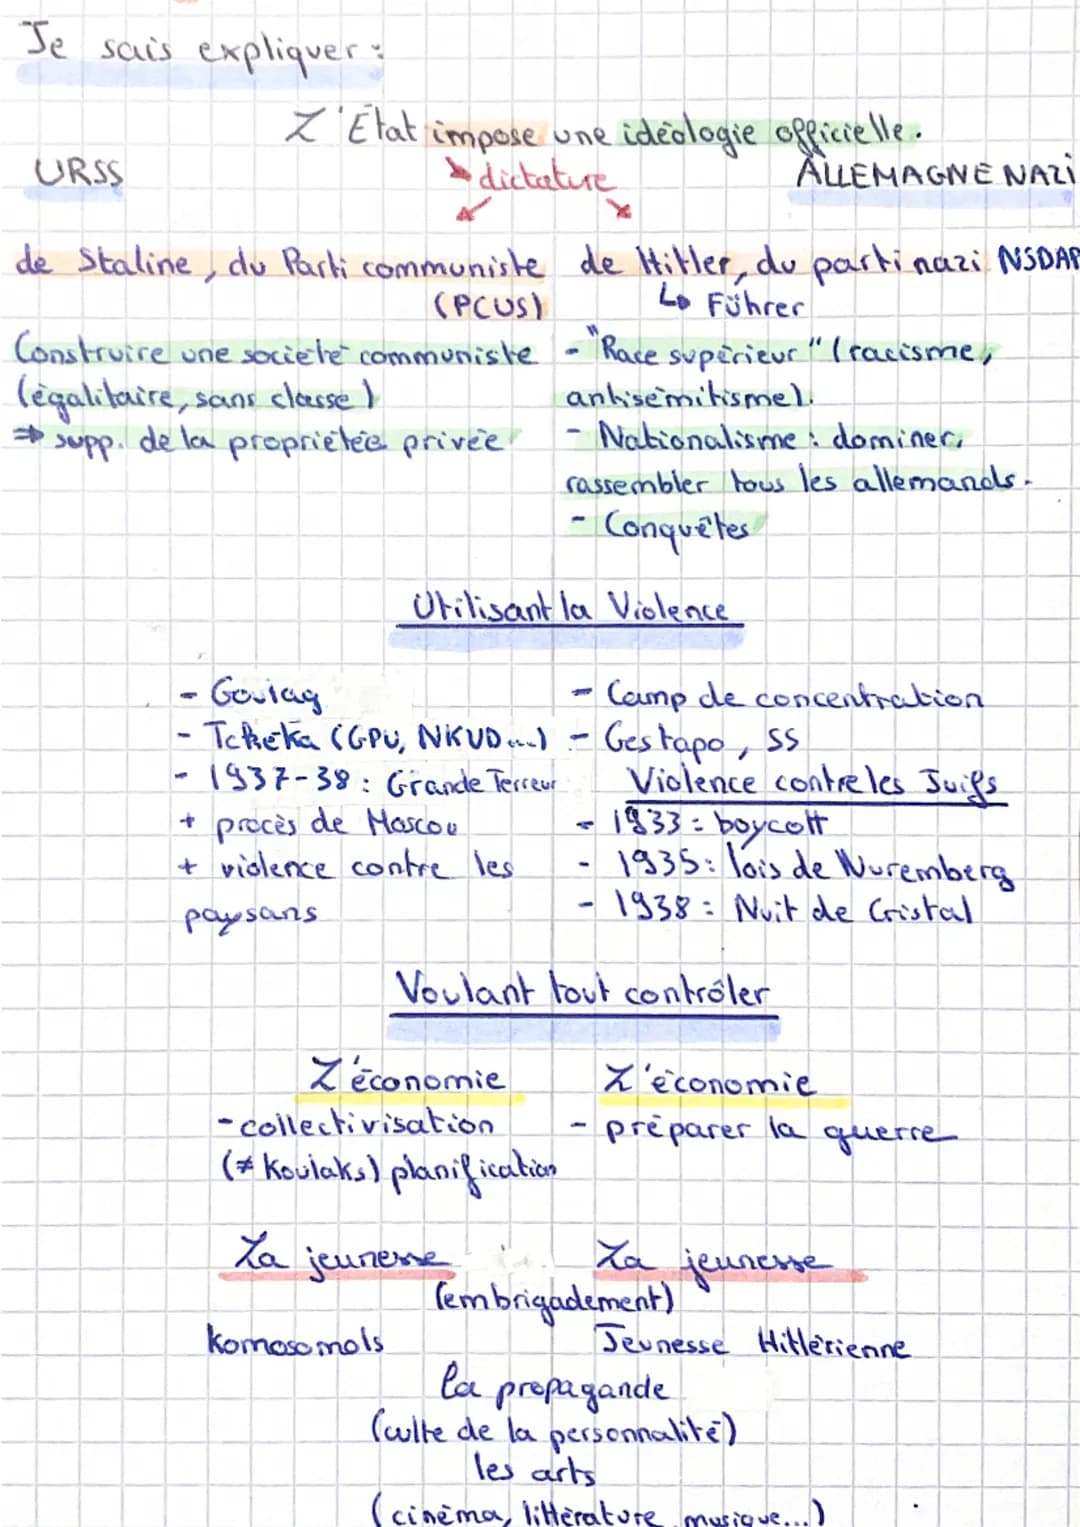 Je sais expliquer :
L'Etat impose une idéologie officielle.
URSS
dictature
ALLEMAGNE NAZI
de Staline, du Parti communiste
(PCUS)
de Hitler, du parti nazi NSDAP
Führer
Construire une société communiste
(égalitaire, sans classe)
⇒ supp. de la propriétée privée
- "Race supérieur" (racisme,
antisémitisme).
- Nationalisme : dominer,
rassembler tous les allemands.
- Conquêtes
Utilisant la Violence
- Goulag
- Tchéka (GPU, NKUD...)
- 1937-38 : Grande Terreur
+ procès de Moscou
+ violence contre les
paysans
- Camp de concentration
- Gestapo, SS
Violence contre les Juifs
- 1933 : boycott
- 1935 : lois de Nuremberg
- 1938 : Nuit de Cristal
Voulant tout contrôler
L'économie
- collectivisation
(≠ Koulaks) planification
L'économie
- préparer la guerre
La jeunesse
La jeunesse
(embrigadement)
Komosomols
Jeunesse Hitlérienne
la propagande
(culte de la personnalité)
les arts
(cinéma, littérature, musique...)